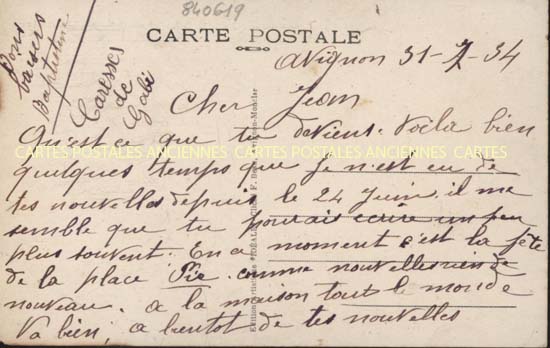 840619
CARTE POSTALE
Avignon 31-7-34
Bons
baisers
Baptistine
Caresses
de
Gabi
Cher Jean
Qu'est ce que tu deviens. Voila bien
CARTES POSTALES ANCIENNES CARTES POSTALES ANCIENNES CARTES
quelques temps que je n'est eu de
tes nouvelles depuis le 24 Juin. il me
semble que tu pourais ecrire un peu
plus souvent. En a moment c'est la fête
de la place Pie. comme nouvelles rien de
nouveau. a la maison tout le monde
va bien, a bientot de tes nouvelles